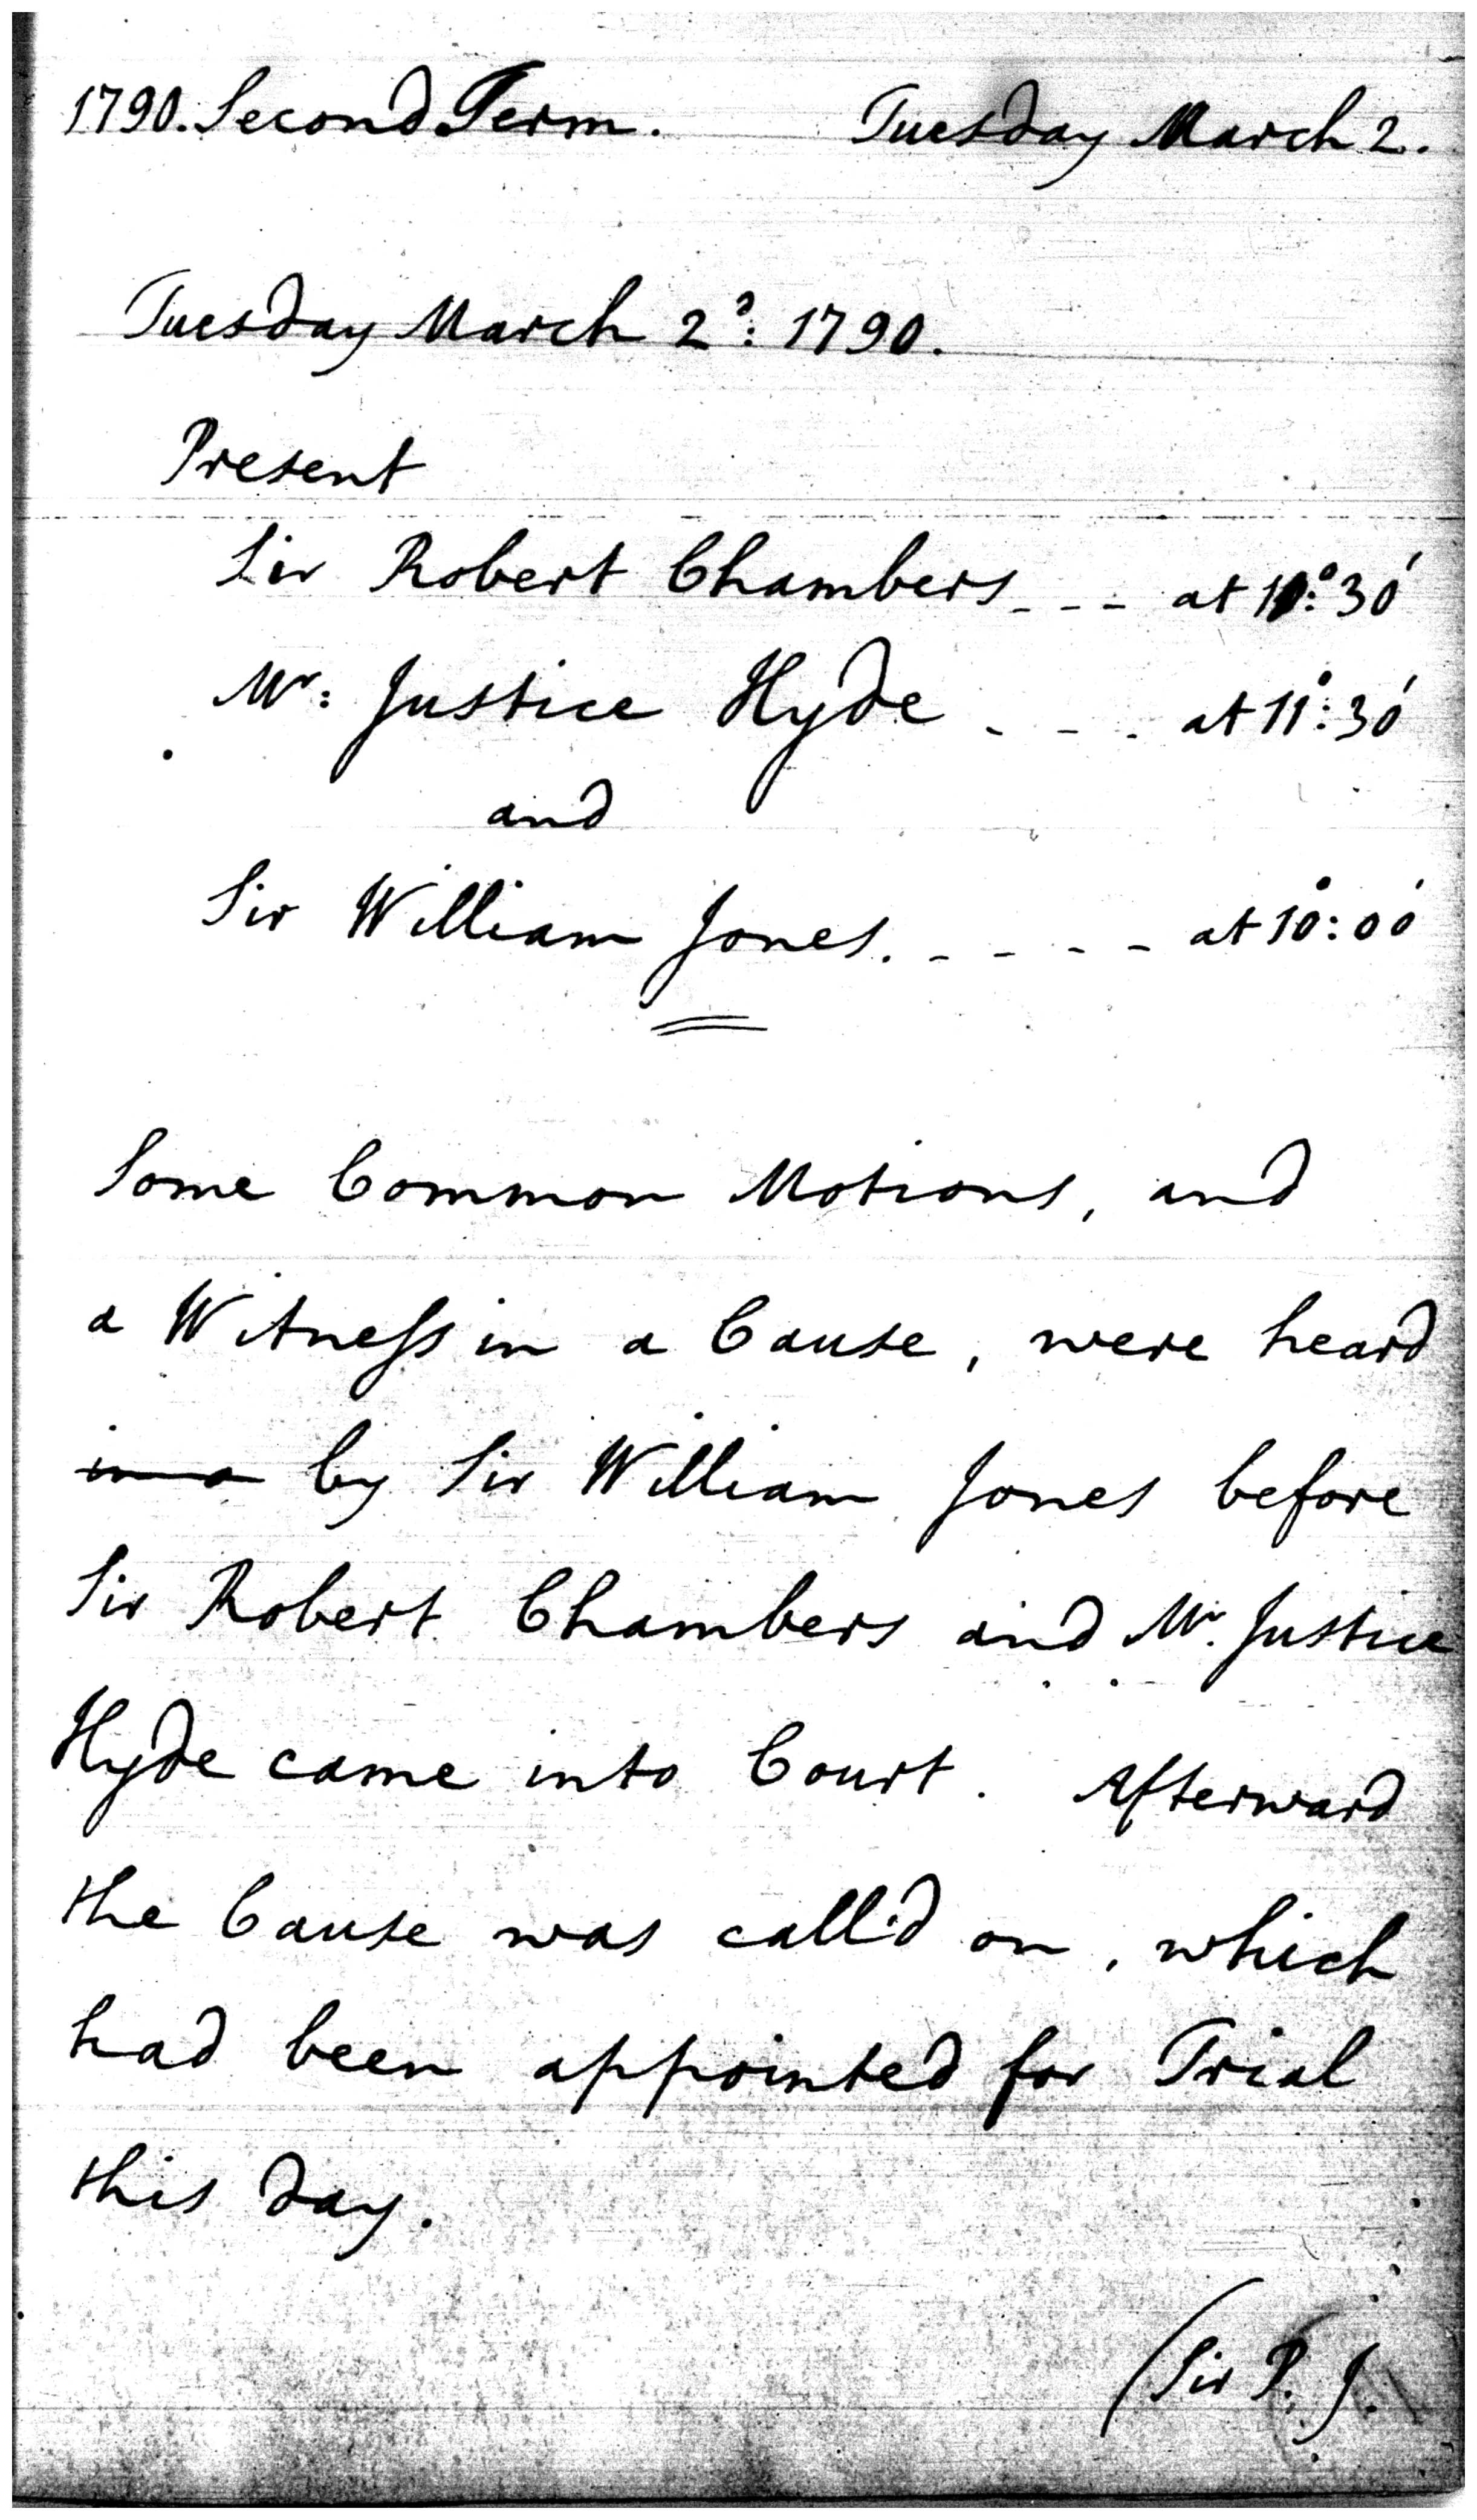 1790. Second Term. Tuesday March 2.
Tuesday March 2d: 1790.
Present
Sir Robert Chambers - - - at 11°: 30'
Mr: Justice Hyde - - - at 11°: 30'
and
Sir William Jones. - - - - at 10°: 00'
Some Common Motions, and
a Witness in a Cause, were heard
in a by Sir William Jones before
Sir Robert Chambers and Mr. Justice
Hyde came into Court. Afterward
the Cause was call'd on, which
had been appointed for Trial
this day.
(Sir P. J.